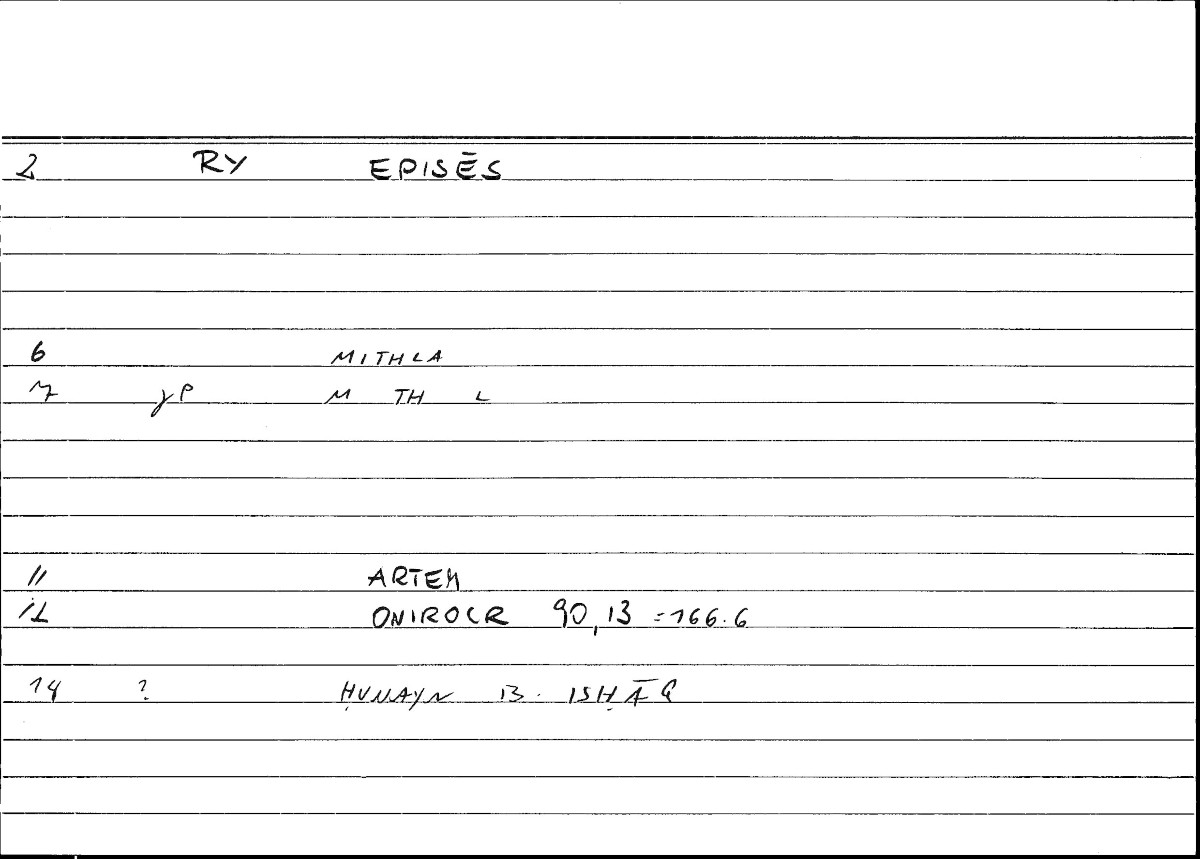 2 RY EPISĒS
6 MITHLA
7 γP M TH L
11 ARTEM
12 ONIROCR 90,13 =166.6
14 ? ḤUNAYN B. ISḤĀQ